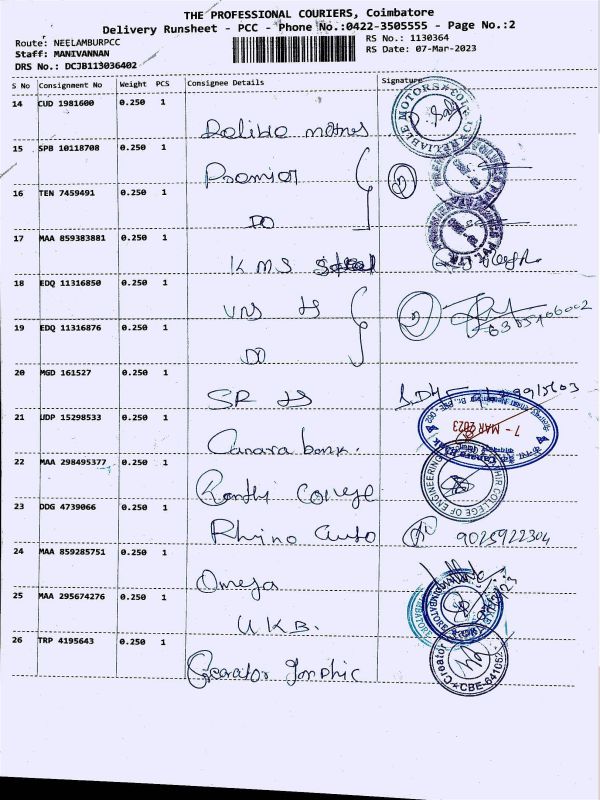 THE PROFESSIONAL COURIERS, Coimbatore
Delivery Runsheet - PCC - Phone No.:0422-3505555 - Page No.:2
Route: NEELAMBURPCC
RS No.: 1130364
Staff: MANIVANNAN
RS Date: 07-Mar-2023
DRS No.: DCJB113036402
S No Consignment No Weight PCS Consignee Details Signature
14 CUD 1981600 0.250 1
15 SPB 10118708 0.250 1
Premier
16 TEN 7459491 0.250 1
DO
17 MAA 859383881 0.250 1
KMS
18 EDQ 11316850 0.250 1
19 EDQ 11316876 0.250 1
DO
20 MGD 161527 0.250 1
SR
21 UDP 15298533 0.250 1
Canara bank.
7 - MAR 2023
22 MAA 298495377 0.250 1
College
COLLEGE OF ENGINEERING
23 DDG 4739066 0.250 1
Rhino Auto 9025922304
24 MAA 859285751 0.250 1
Omega
25 MAA 295674276 0.250 1
U.K.B.
26 TRP 4195643 0.250 1
Creator ★ CBE-641052